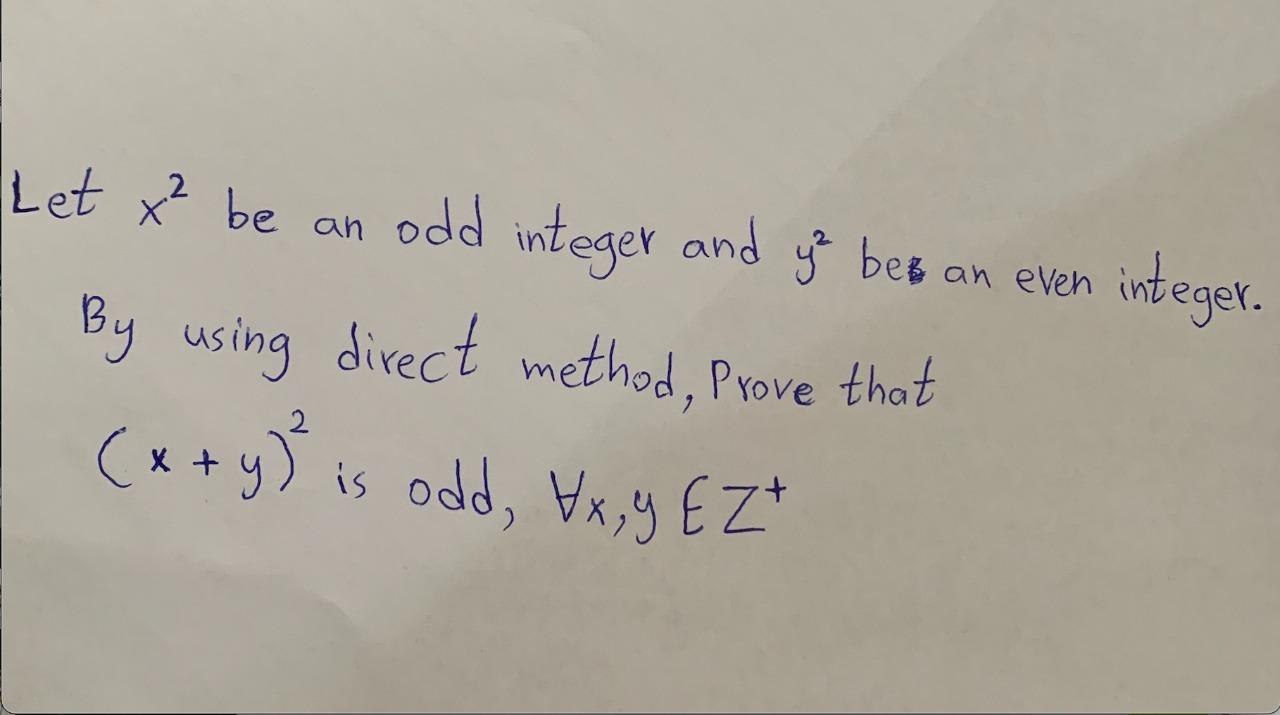 Let x² be an odd integer and y² be an even integer.
By using direct method, Prove that
(x + y)² is odd, ∀x,y ∈ Z⁺